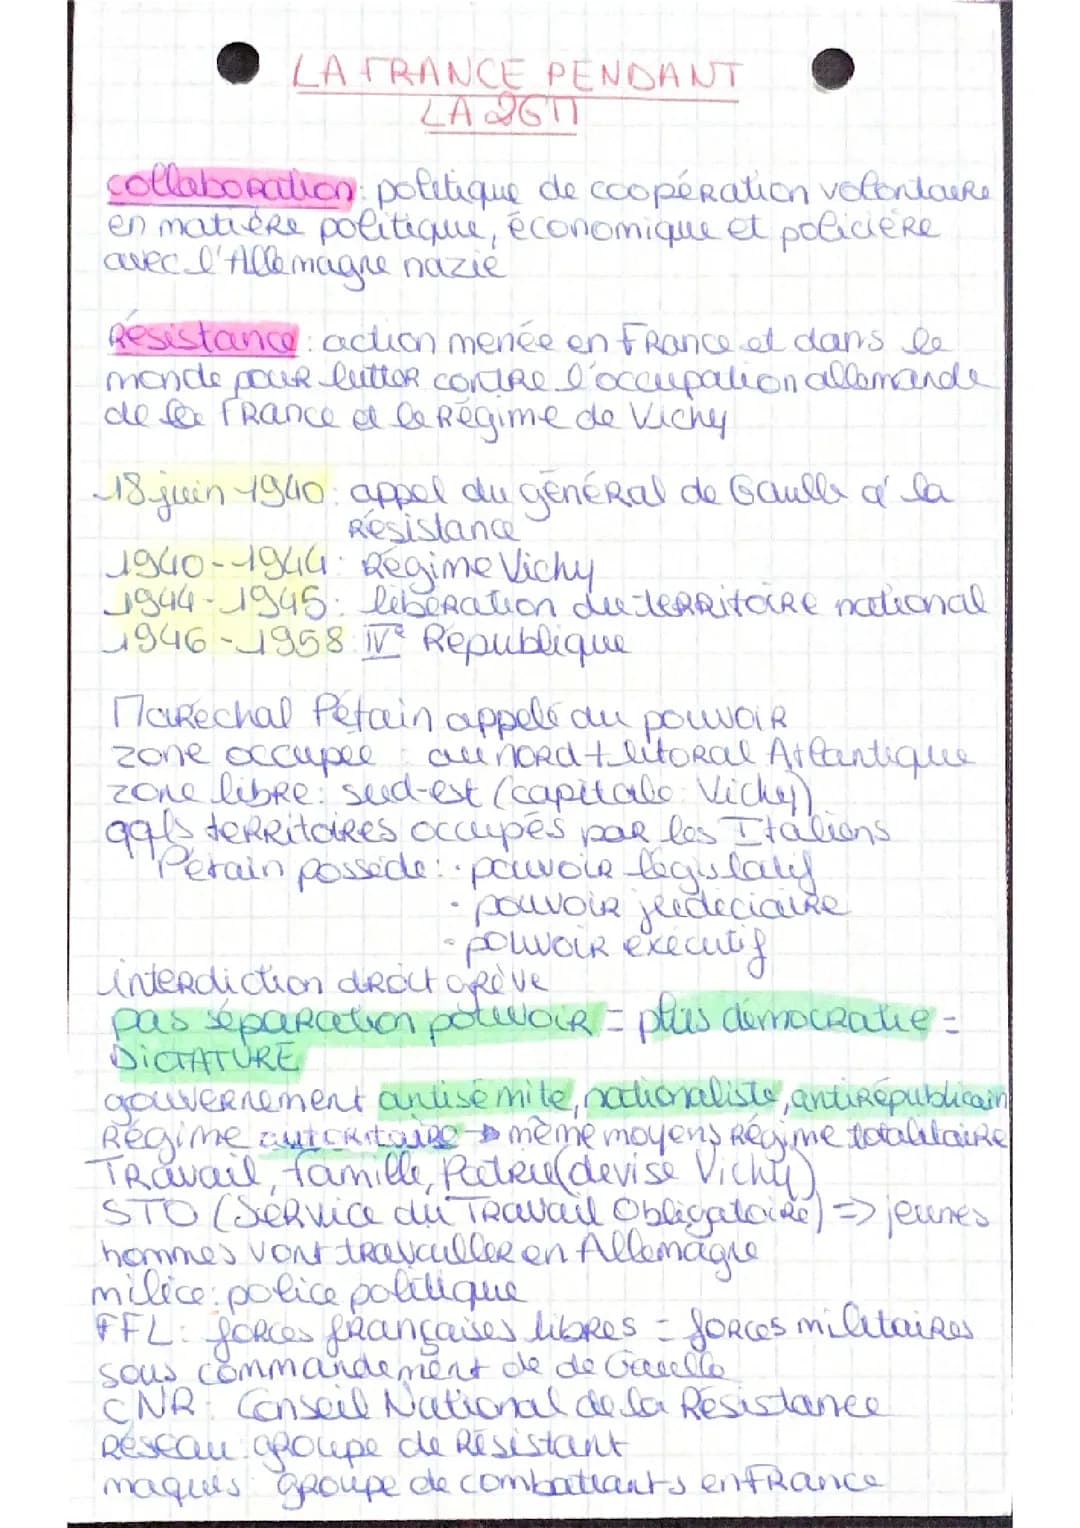 LA FRANCE PENDANT
LA 2GM
collaboration : politique de coopération volontaire
en matière politique, économique et policière
avec l'Allemagne nazie
Résistance : action menée en France et dans le
monde pour lutter contre l'occupation allemande
de la France et le Régime de Vichy
18 juin 1940 : appel du général de Gaulle à la
Résistance
1940-1944 : Régime Vichy
1944-1945 : libération du territoire national
1946-1958 : IVe République
Maréchal Pétain appelé au pouvoir
zone occupée : au nord + litoral Atlantique
zone libre : sud-est (capitale : Vichy)
qqls territoires occupés par les Italiens
Pétain possède : · pouvoir législatif
· pouvoir judiciaire
· pouvoir exécutif
interdiction droit grève
pas séparation pouvoir = plus démocratie =
DICTATURE
gouvernement antisémite, nationaliste, antirépublicain
Régime autoritaire → même moyens Régime totalitaire
Travail, Famille, Patrie (devise Vichy)
STO (Service du Travail Obligatoire) => jeunes
hommes vont travailler en Allemagne
milice : police politique
FFL : forces françaises libres = forces militaires
sous commandement de de Gaulle
CNR : Conseil National de la Résistance
Réseau : groupe de Résistant
maquis : groupe de combattants en France